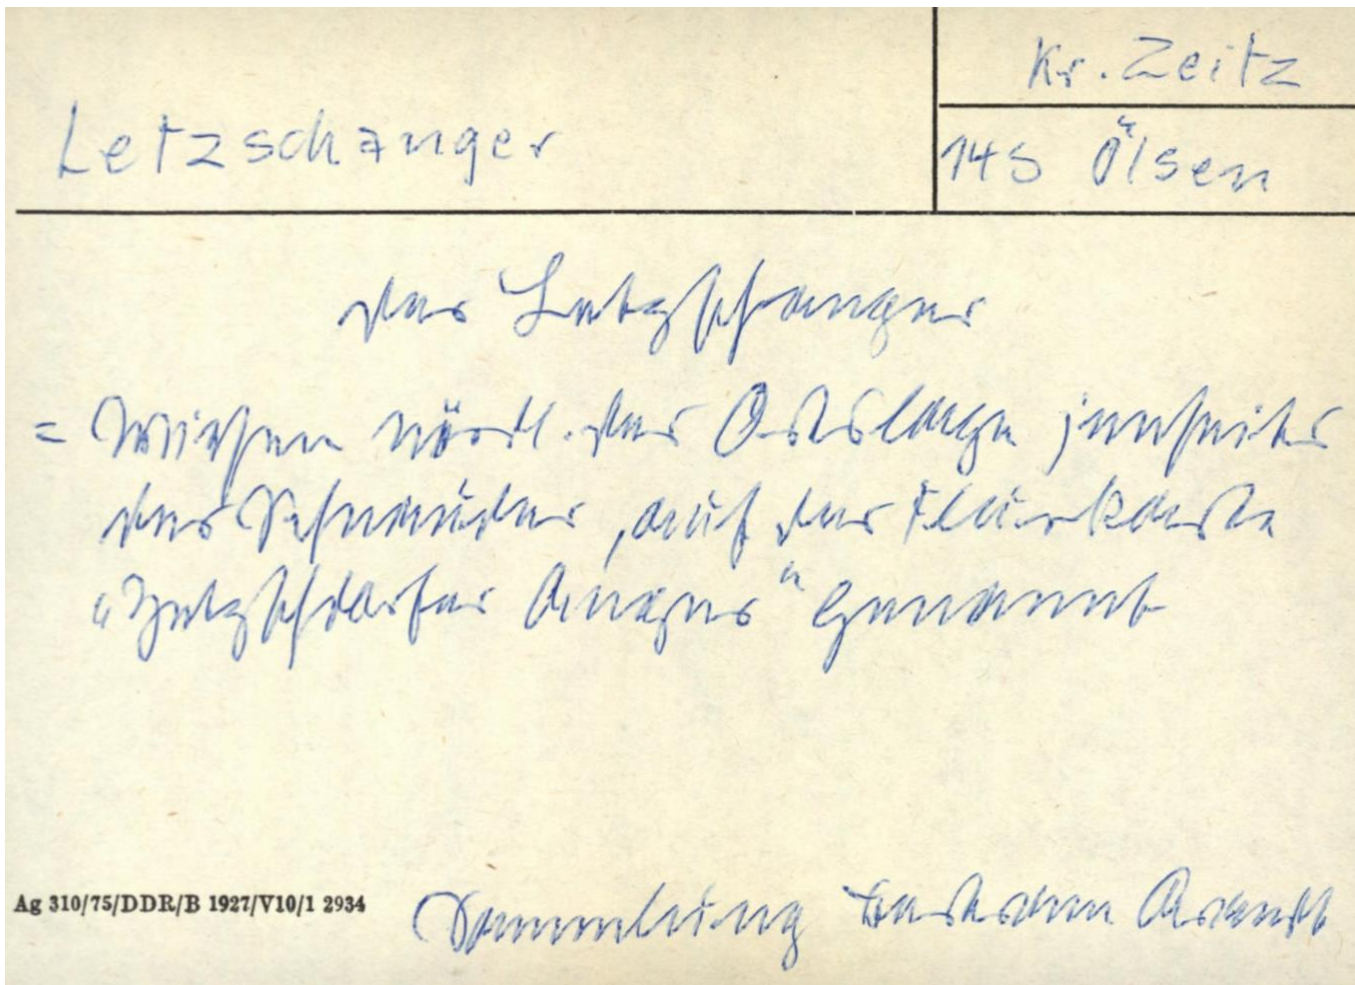 Kr. Zeitz
Letzschanger
145 Ölsen
der Letzschanger
= Wiesen nördl. der Ortslage jenseits
der Schnauder, auf der Flurkarte
"Zetzschdorfer Anger" genannt
Ag 310/75/DDR/B 1927/V10/1 2934
Sammlung Arendt